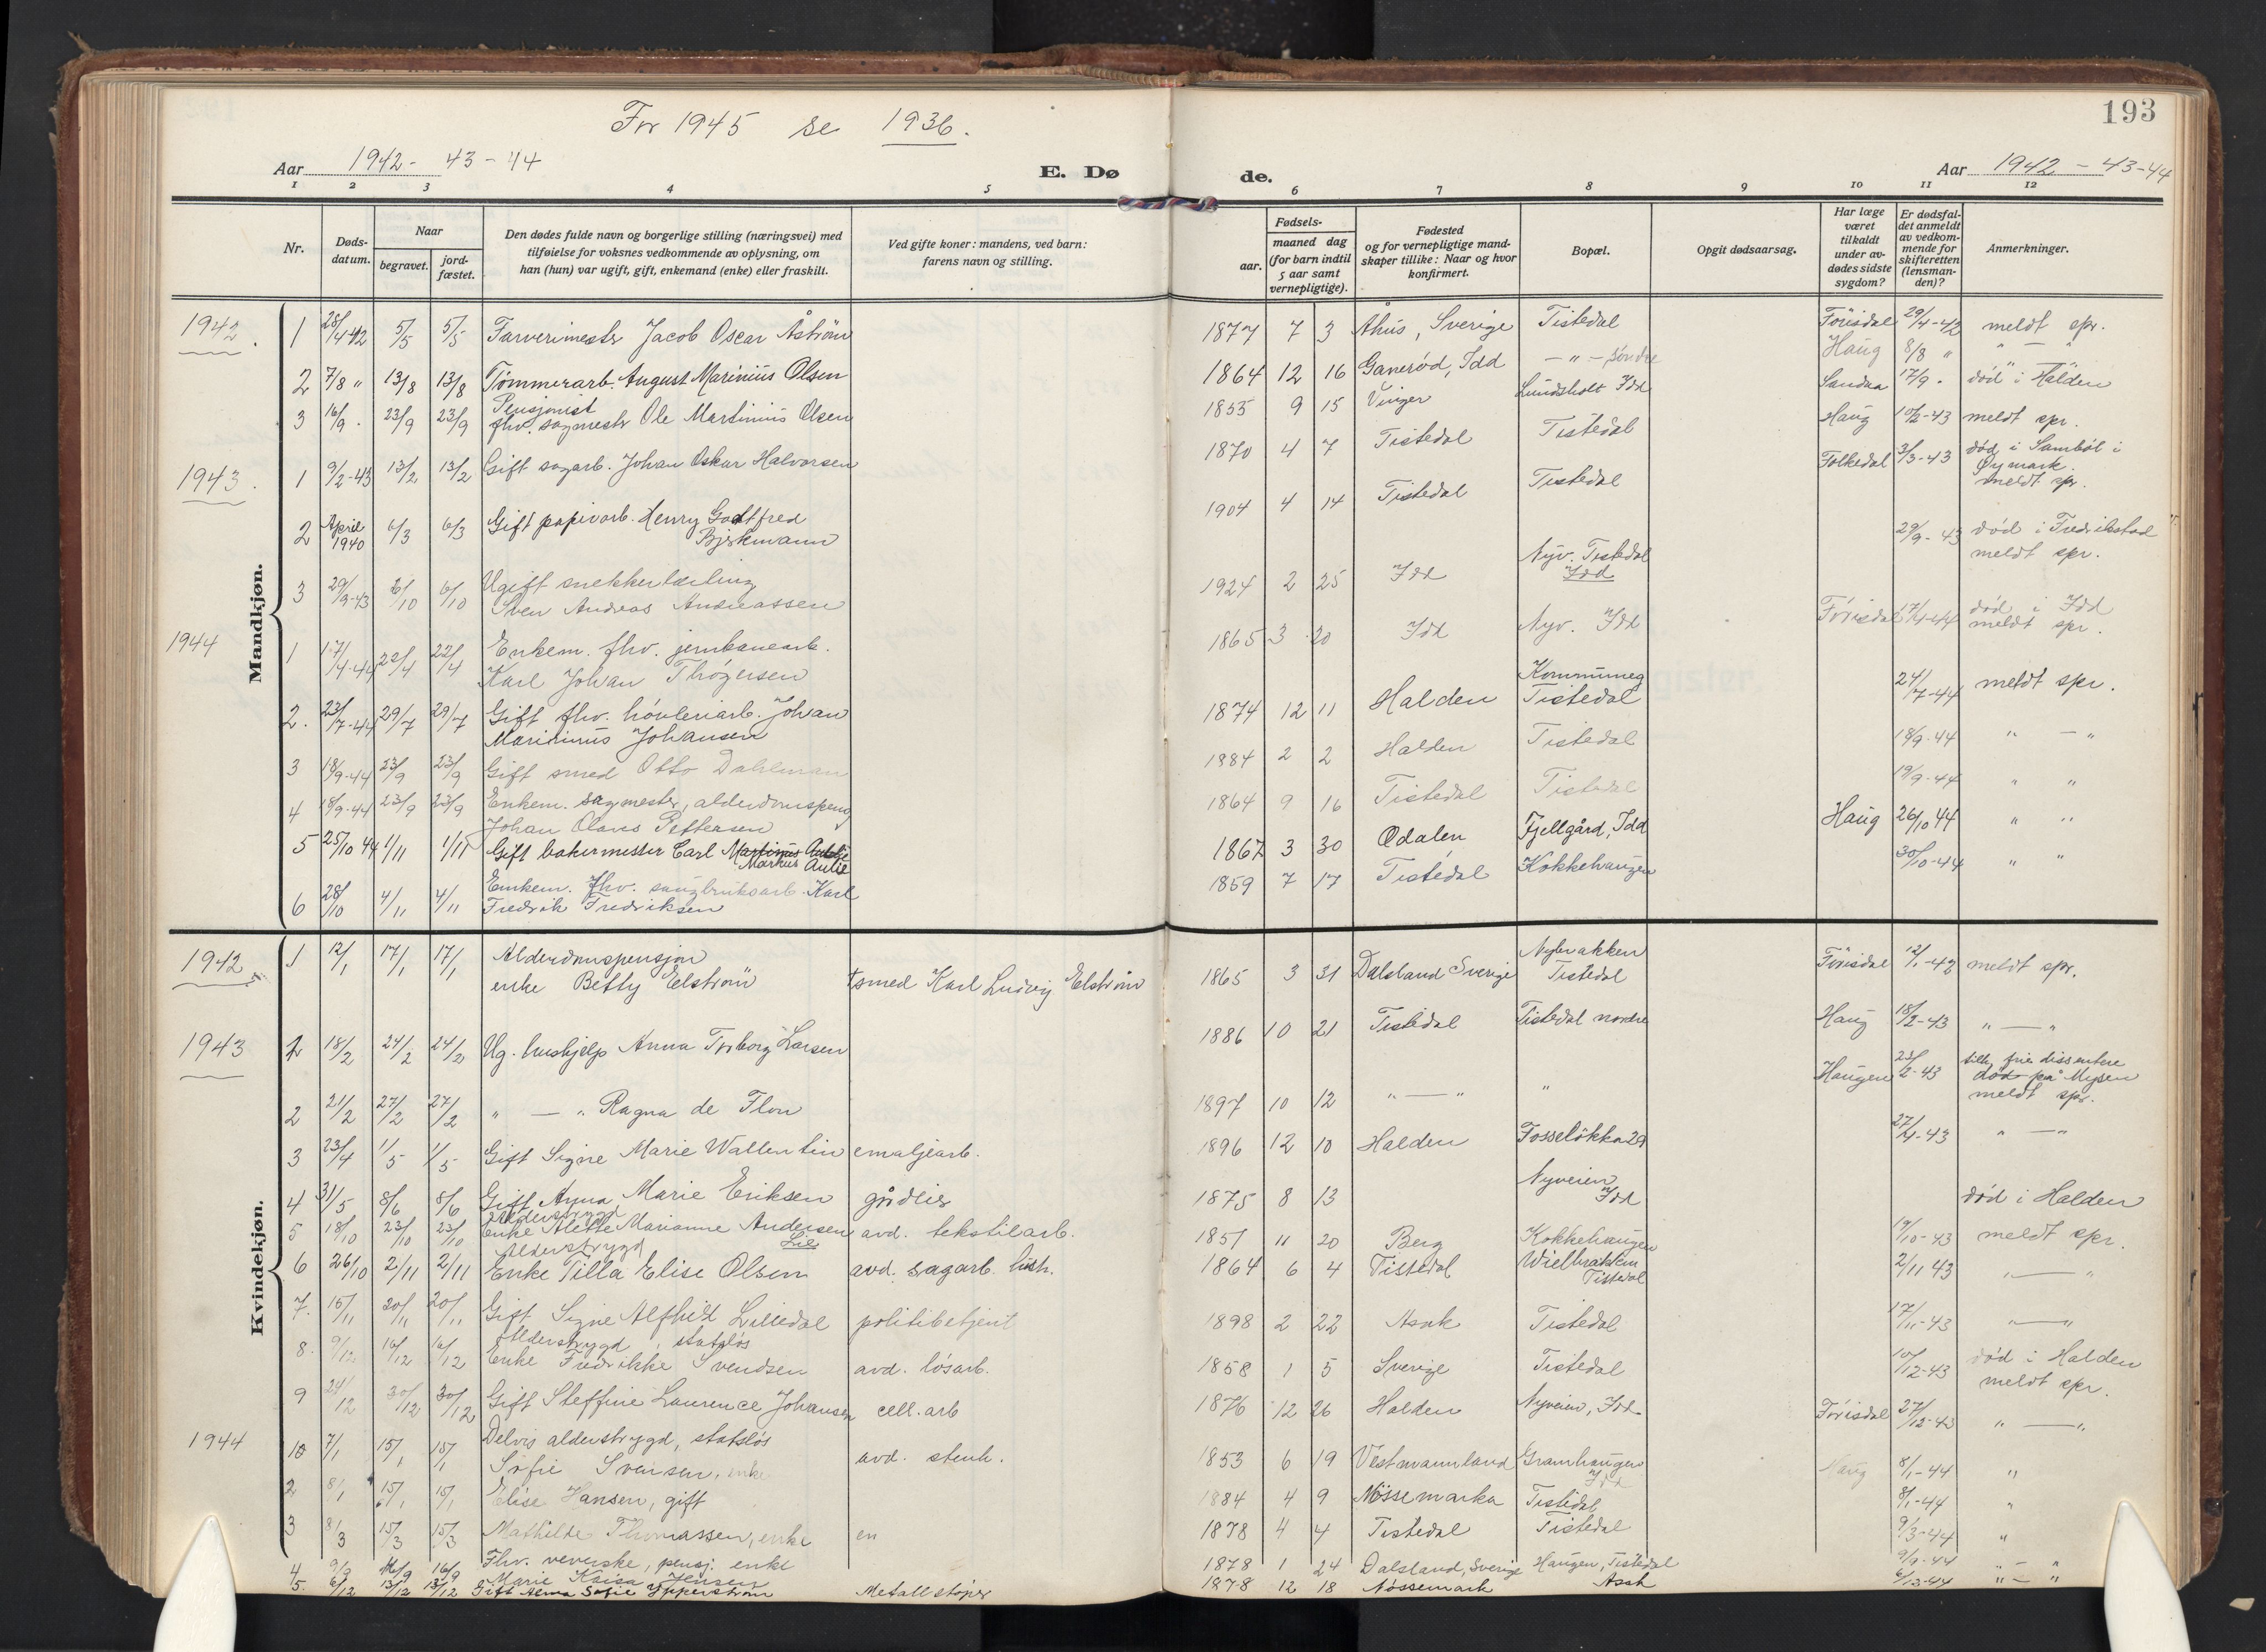 For 1945 se 1936.
193
Aar 1942 - 43 - 44
E. Dø
de.
Aar 1942 - 43-44
1 2 3 4 5 6 7 8 9 10 11 12
Nr.
Døds-datum.
Naar
begravet.
jord-fæstet.
Den dødes fulde navn og borgerlige stilling (næringsvei) med
tilføielse for voksnes vedkommende av oplysning, om
han (hun) var ugift, gift, enkemand (enke) eller fraskilt.
Ved gifte koner: mandens, ved barn:
farens navn og stilling.
Fødsels-
aar.
maaned dag
(for barn indtil
5 aar samt
vernepligtige).
Fødested
og for vernepligtige mand-
skaper tillike: Naar og hvor
konfirmert.
Bopæl.
Opgit dødsaarsag.
Har læge
været
tilkaldt
under av-
dødes sidste
sygdom?
Er dødsfal-
det anmeldt
av vedkom-
mende for
skifteretten
(lensman-
den)?
Anmerkninger.
Mandkjøn.
1942. 1 28/4 42 5/5 5/5 Farverimester Jacob Oscar Åström 1877 7 3 Åhus, Sverige Tistedal Förisdal 29/4-42 meldt spr.
2 7/8 " 13/8 13/8 Tømmerarb. August Marinius Olsen 1864 12 16 Ganerød, Idd - " - søndre Haug 8/8 " " - "
3 16/9 . 23/9 23/9 Pensjonist
fhv. sagmestr Ole Martinius Olsen 1855 9 15 Vinger Lundsholt Idd Sandaa 17/9 . død i Halden
1943. 1 9/2-43 13/2 13/2 Gift sagarb. Johan Oskar Halvorsen 1870 4 7 Tistedal Tistedal Haug 10/2-43 meldt spr.
2 April 1940 6/3 6/3 Gift papirarb. Henry Godtfred
Bjørkmann 1904 4 14 Tistedal Tistedal Folkedal 3/3-43 død i Sambøl i
Øymark.
meldt spr.
3 29/9-43 6/10 6/10 Ugift snekkerlærling
Sven Andreas Andreassen 1924 2 25 Idd Nyv. Tistedal
Idd 29/9-43 død i Fredrikstad
meldt spr.
1944 1 17/4-44 22/4 22/4 Enkem. fhv. jernbanearb.
Karl Johan Thøgersen 1865 3 20 Idd Nyv. Idd Förisdal 17/4-44 død i Idd
meldt spr.
2. 23/7-44 29/7 29/7 Gift fhv. høvleriarb. Johan
Marinius Johansen 1874 12 11 Halden Kommuneg
Tistedal 24/7-44 meldt spr.
3 18/9-44 23/9 23/9 Gift smed Otto Dahlman 1884 2 2 Halden Tistedal 18/9-44 " - "
4 18/9-44 23/9 23/9 Enkem. sagmester, alderdomspensj
Johan Olaves Pettersen 1864 9 16 Tistedal Tistedal 19/9-44 " "
5 25/10 44 1/11 1/11 Gift bakermester Carl Martinus Aulie
Markus Aulie 1867 3 30 Odalen Fjellgård, Idd Haug 26/10 44 " "
6 28/10 4/11 4/11 Emkem. fhv. saugbruksarb. Karl
Fredrik Fredriksen 1859 7 17 Tistedal Kokkehaugen 30/10-44 " "
Kvindekjøn.
1942 1 12/1 17/1 17/1 Alderdomspensjon
enke Betty Elström smed Karl Ludvig Elström 1865 3 31 Dalsland Sverige Nybrakken
Tistedal Förisdal 12/1-42 meldt spr.
1943 1 18/2 24/2 24/2 Ug. hushjelp Anna Torborg Larsen 1886 10 21 Tistedal Tistedal nordre Haug 18/2-43 " — "
2 21/2 27/2 27/2 " — " Ragna de Flon 1897 10 12 " — " " Haugen 23/2-43 tilh. frie dissentere
død på Mysen
meldt spr.
3 23/4 1/5 1/5 Gift Signe Marie Wallentin emaljearb. 1896 12 10 Halden Fosseløkka 29 27/4-43 " — "
4 31/5 8/6 8/6 Gift Anna Marie Eriksen gårdeier 1875 8 13 Nyveien
Idd død i Halden
5 18/10 23/10 23/10 Alderstrygd
Enke Alette Marianne Andersen Lie avd. tekstilarb. 1851 11 20 Berg Kokkehaugen 19/10-43 meldt spr.
6 26/10 2/11 2/11 Alderstrygd
Enke Tilla Elise Olsen avd. sagarb. 1864 6 4 Tistedal Wielbrakken
Tistedal 2/11 43 " — "
7. 15/11 20/11 20/11 Gift Signe Alfhild Lilledal politibetjent 1898 2 22 Asak Tistedal 17/11-43 " — "
8. 9/12 16/12 16/12 Alderstrygd, statsløs
Enke Fredrikke Svendsen avd. løsarb. 1858 1 5 Sverige Tistedal 10/12-43 død i Halden
meldt spr.
9 24/12 30/12 30/12 Gift Steffine Laurence Johansen cell. arb 1876 12 26 Halden Nyveien, Idd. Förisdal 27/12-43 " — "
1944 10 7/1 15/1 15/1 Delvis alderstrygd, statsløs
Sofie Svensen, enke avd. stenh. 1853 6 19 Vestmannland Gramhaugen
Idd Haug 8/1-44 "
2 8/1 15/1 15/1 Elise Hansen, gift 1884 4 9 Nössemarka Tistedal 8/1-44 "
3 8/3 15/3 15/3 Mathilde Thomassen, enke en 1878 4 4 Tistedal Tistedal 9/3-44 "
4 9/9 16/9 16/9 Fhv. veverske, pensj. enke
Marie Kaisa Jensen 1878 1 24 Dalsland, Sverige Haugen, Tistedal 9/9-44 " - "
5. 6/12 13/12 13/12 Gift Alma Sofie Ypperström Metallstøper 1878 12 18 Nössemark Asak 6/12-44 " - "